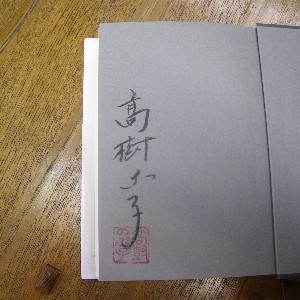 高樹のぶ子